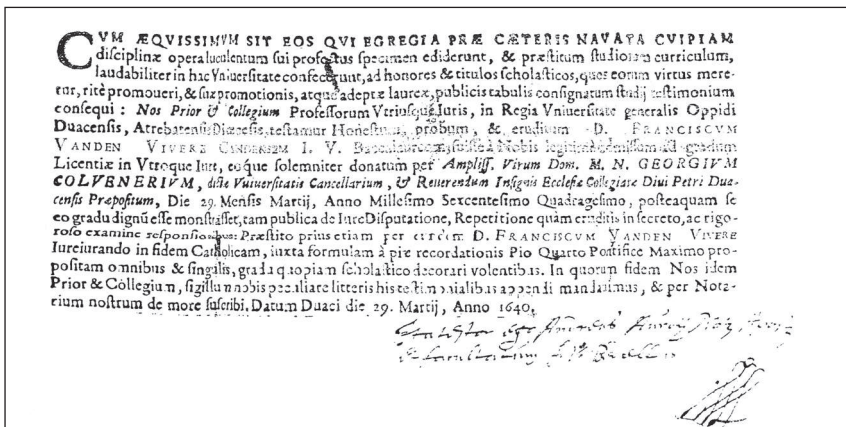 CVM ÆQVISSIMVM SIT EOS QVI EGREGIA PRÆ CÆTERIS NAVATA CVIPIAM
disciplinæ opera luculentum sui profectus specimen ediderunt, & præstitum studiorum curriculum,
laudabiliter in hac Vniuersitate confecerunt, ad honores & titulos scholasticos, quos eorum virtus mere-
tur, ritè promoueri, & suæ promotionis, atque adeptæ laureæ, publicis tabulis consignatum studij testimonium
consequi : Nos Prior & Collegium Professorum Vtriusque Iuris, in Regia Vniuersitate generalis Oppidi
Duacensis, Atrebatensis Diœcesis, testamur Honestum, probum, & eruditum D. FRANCISCVM
VANDEN VIVERE GANDENSEM I. V. Baccalaureum, fuisse à Nobis legitimè admissum ad gradum
Licentiæ in Vtroque Iure, eoque solemniter donatum per Ampliss. Virum Dom. M. N. GEORGIVM
COLVENERIVM, dictæ Vniuersitatis Cancellarium, & Reuerendum Insignis Ecclesiæ Collegiatæ Diui Petri Dua-
censis Præpositum, Die 29. Mensis Martij, Anno Millesimo Sexcentesimo Quadragesimo, posteaquam se
eo gradu dignũ esse monstrasset, tam publica de Iure Disputatione, Repetitione quàm eruditis in secreto, ac rigo-
roso examine responsionibus: Præstito prius etiam per eundem D. FRANCISCVM VANDEN VIVERE
Iureiurando in fidem Catholicam, iuxta formulam à piæ recordationis Pio Quarto Pontifice Maximo pro-
positam omnibus & singulis, gradu quopiam scholastico decorari volentibus. In quorum fidem Nos idem
Prior & Collegium, sigillum nobis peculiare litteris his testimonialibus appendi mandauimus, & per Nota-
rium nostrum de more suscribi. Datum Duaci die 29. Martij, Anno 1640.